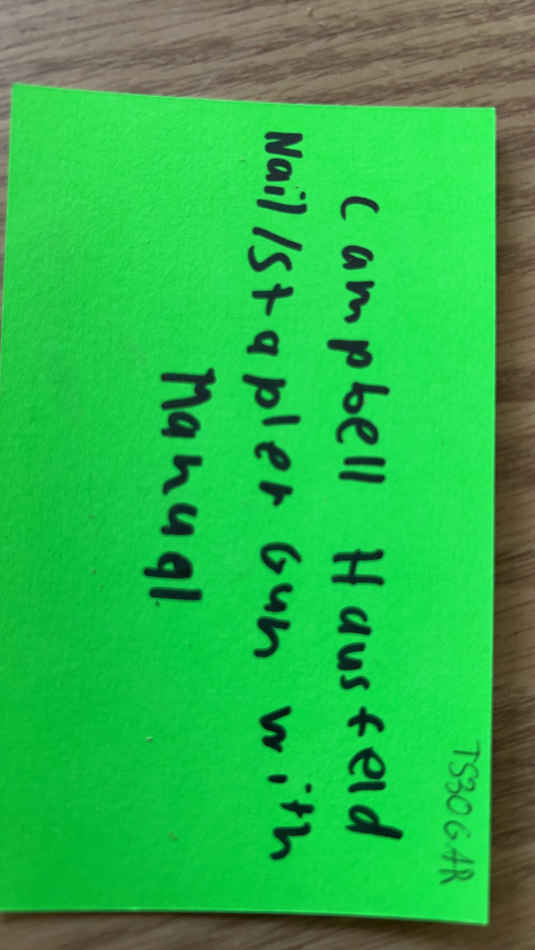 TS30GAR
Campbell Hausfeld
Nail/Stapler Gun with
Manual